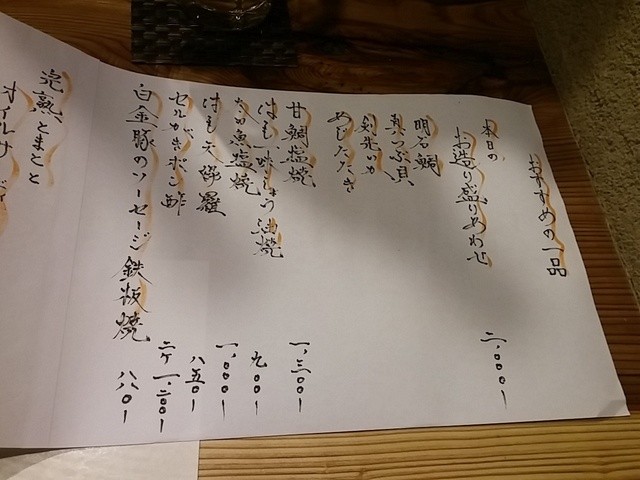 おすすめの一品
本日の
お造り盛りあわせ 二、〇〇〇ー
明石鯛
真つぶ貝
剣先いか
めじたたき
甘鯛塩焼 一、三〇〇ー
はも一味しょう油焼 九〇〇ー
太刀魚塩焼 一、〇〇〇ー
はも天婦羅 八五〇ー
セルがきポン酢 二ケ 一、二〇〇ー
白金豚のソーセージ鉄板焼 八八〇ー
完熟とまとと
オイルサ